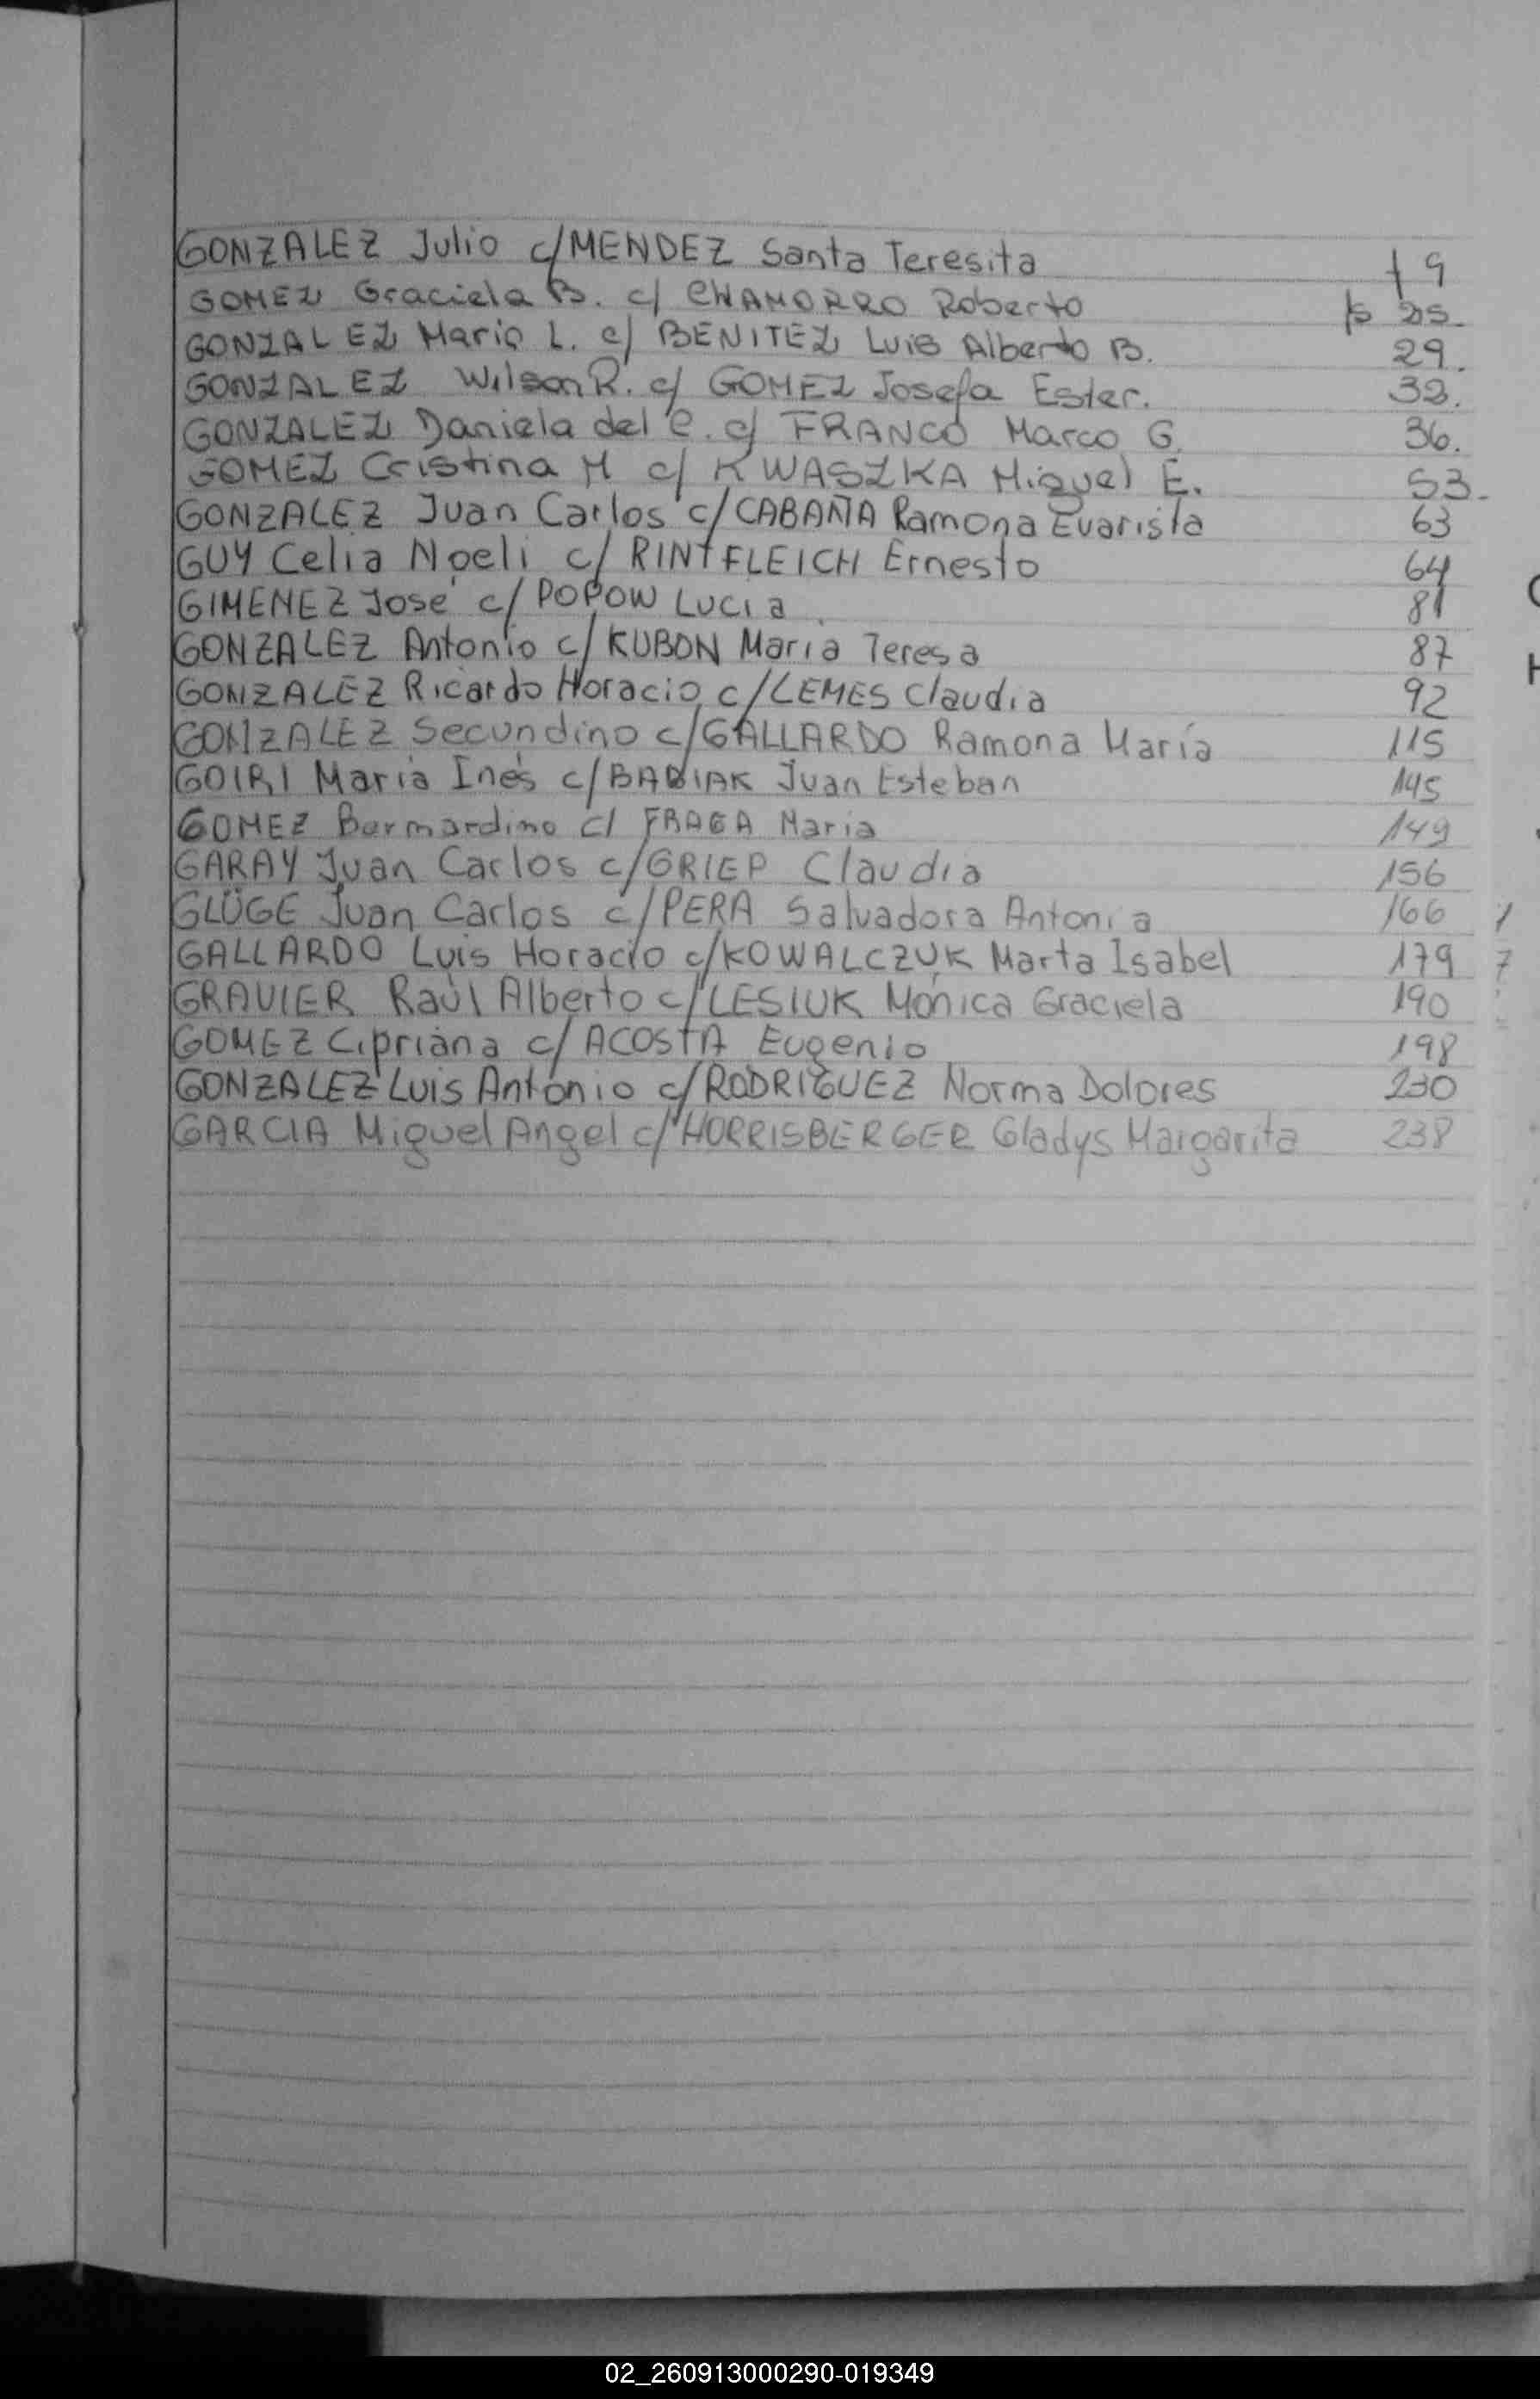 GONZALEZ Julio c/MENDEZ Santa Teresita f 9
GOMEZ Graciela B. c/ CHAMORRO Roberto 25.
GONZALEZ Mario L. c/ BENITEZ Luis Alberto B. 29.
GONZALEZ Wilson R. c/ GOMEZ Josefa Ester. 32.
GONZALEZ Daniela del C. c/ FRANCO Marco G. 36.
GOMEZ Cristina M c/ KWASZKA Miguel E. 53.
GONZALEZ Juan Carlos c/CABAÑA Ramona Evarista 63
GUY Celia Noeli c/ RINTFLEICH Ernesto 64
GIMENEZ José c/ POPOW Lucia 81
GONZALEZ Antonio c/ KUBON Maria Teresa 87
GONZALEZ Ricardo Horacio c/LEMES Claudia 92
GONZALEZ Secundino c/GALLARDO Ramona María 115
GOIRI Maria Inés c/BABIAK Juan Esteban 145
GOMEZ Bernardino c/ FRAGA Maria 149
GARAY Juan Carlos c/GRIEP Claudia 156
GLÜGE Juan Carlos c/PERA Salvadora Antonia 166
GALLARDO Luis Horacio c/KOWALCZUK Marta Isabel 179
GRAVIER Raúl Alberto c/LESIUK Mónica Graciela 190
GOMEZ Cipriana c/ ACOSTA Eugenio 198
GONZALEZ Luis Antonio c/RODRIGUEZ Norma Dolores 230
GARCIA Miguel Angel c/HORRISBERGER Gladys Margarita 238
02_260913000290-019349